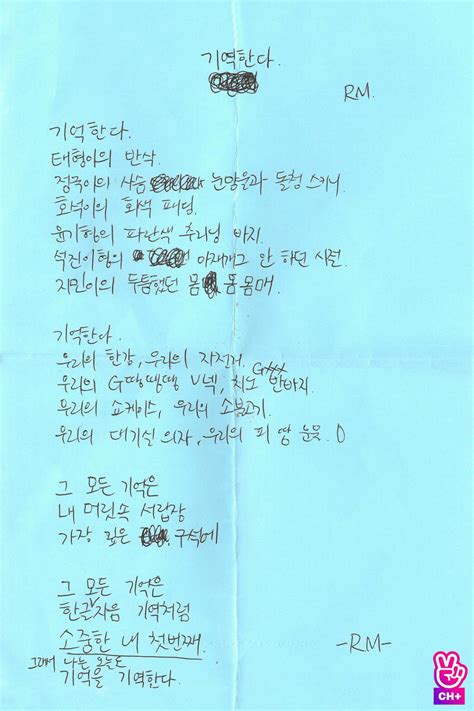 기억한다.
RM.
기억한다.
태형이의 반삭.
정국이의 사슴 눈망울과 돌청 스키니.
호석이의 회색 패딩.
윤기형의 파란색 추리닝 바지.
석진이형의 아재개그 안 하던 시절.
지민이의 두툼했던 몸 몸매.
기억한다.
우리의 한강, 우리의 자전거.
우리의 G땡땡땡 V넥, 치노 반바지.
우리의 쇼케이스, 우리의 소불고기.
우리의 대기실 의자, 우리의 피 땀 눈물.
그 모든 기억은
내 머릿속 서랍장
가장 깊은 구석에
그 모든 기억은
한글 자음 기역처럼
소중한 내 첫번째.
-RM-
그래서 나는 오늘도
기억을 기억한다.
CH+